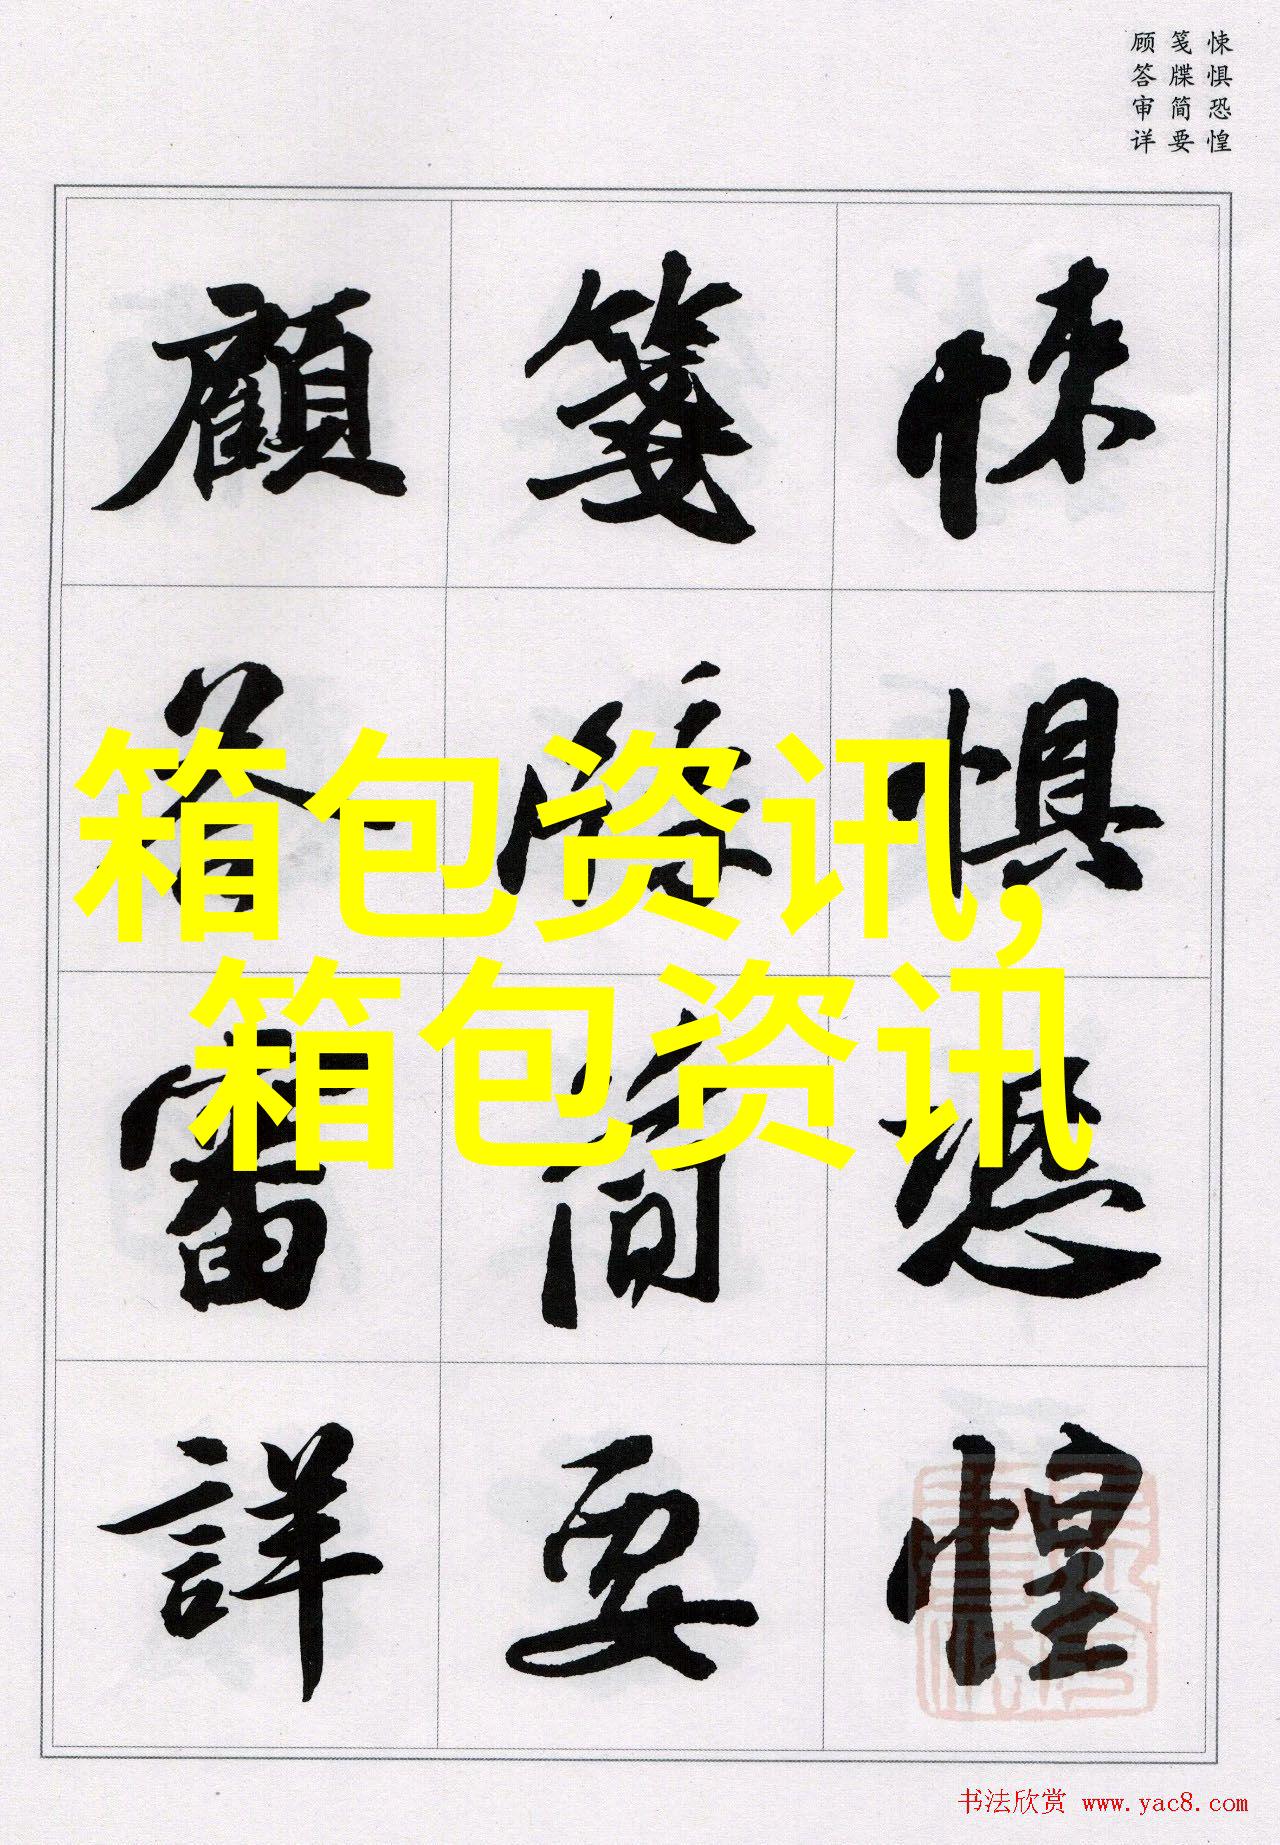 悚惧恐惶
笺牒简要
顾答审详
悚惧恐惶
笺牒简要
顧答審詳
箱包资讯,
箱包资讯
书法欣赏 www.yac8.com